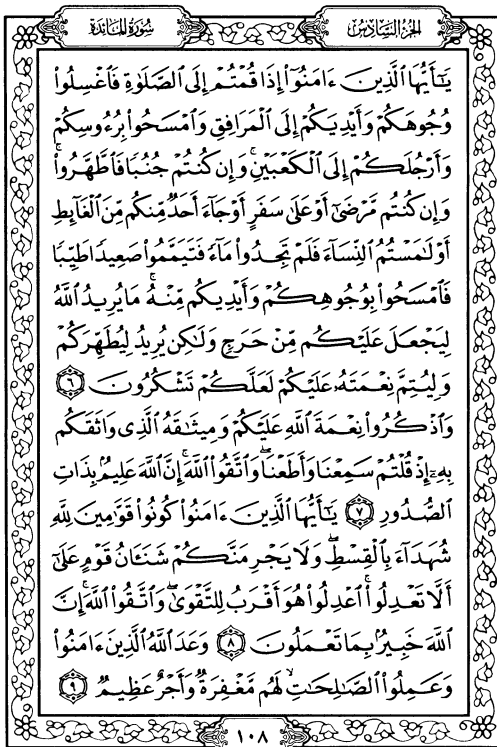 سُورَةُ المَائدة
الجُزءُ السَّادِسُ
يَٰٓأَيُّهَا ٱلَّذِينَ ءَامَنُوٓا۟ إِذَا قُمْتُمْ إِلَى ٱلصَّلَوٰةِ فَٱغْسِلُوا۟
وُجُوهَكُمْ وَأَيْدِيَكُمْ إِلَى ٱلْمَرَافِقِ وَٱمْسَحُوا۟ بِرُءُوسِكُمْ
وَأَرْجُلَكُمْ إِلَى ٱلْكَعْبَيْنِ ۚ وَإِن كُنتُمْ جُنُبًا فَٱطَّهَّرُوا۟ ۚ
وَإِن كُنتُم مَّرْضَىٰٓ أَوْ عَلَىٰ سَفَرٍ أَوْ جَآءَ أَحَدٌ مِّنكُم مِّنَ ٱلْغَآئِطِ
أَوْ لَٰمَسْتُمُ ٱلنِّسَآءَ فَلَمْ تَجِدُوا۟ مَآءً فَتَيَمَّمُوا۟ صَعِيدًا طَيِّبًا
فَٱمْسَحُوا۟ بِوُجُوهِكُمْ وَأَيْدِيكُم مِّنْهُ ۚ مَا يُرِيدُ ٱللَّهُ
لِيَجْعَلَ عَلَيْكُم مِّنْ حَرَجٍ وَلَٰكِن يُرِيدُ لِيُطَهِّرَكُمْ
وَلِيُتِمَّ نِعْمَتَهُۥ عَلَيْكُمْ لَعَلَّكُمْ تَشْكُرُونَ ٦
وَٱذْكُرُوا۟ نِعْمَةَ ٱللَّهِ عَلَيْكُمْ وَمِيثَٰقَهُ ٱلَّذِى وَاثَقَكُم
بِهِۦٓ إِذْ قُلْتُمْ سَمِعْنَا وَأَطَعْنَا ۖ وَٱتَّقُوا۟ ٱللَّهَ ۚ إِنَّ ٱللَّهَ عَلِيمٌۢ بِذَاتِ
ٱلصُّدُورِ ٧ يَٰٓأَيُّهَا ٱلَّذِينَ ءَامَنُوا۟ كُونُوا۟ قَوَّٰمِينَ لِلَّهِ
شُهَدَآءَ بِٱلْقِسْطِ ۖ وَلَا يَجْرِمَنَّكُمْ شَنَـَٔانُ قَوْمٍ عَلَىٰٓ
أَلَّا تَعْدِلُوا۟ ۚ ٱعْدِلُوا۟ هُوَ أَقْرَبُ لِلتَّقْوَىٰ ۖ وَٱتَّقُوا۟ ٱللَّهَ ۚ إِنَّ
ٱللَّهَ خَبِيرٌۢ بِمَا تَعْمَلُونَ ٨ وَعَدَ ٱللَّهُ ٱلَّذِينَ ءَامَنُوا۟
وَعَمِلُوا۟ ٱلصَّٰلِحَٰتِ ۙ لَهُم مَّغْفِرَةٌ وَأَجْرٌ عَظِيمٌ ٩
١٠٨